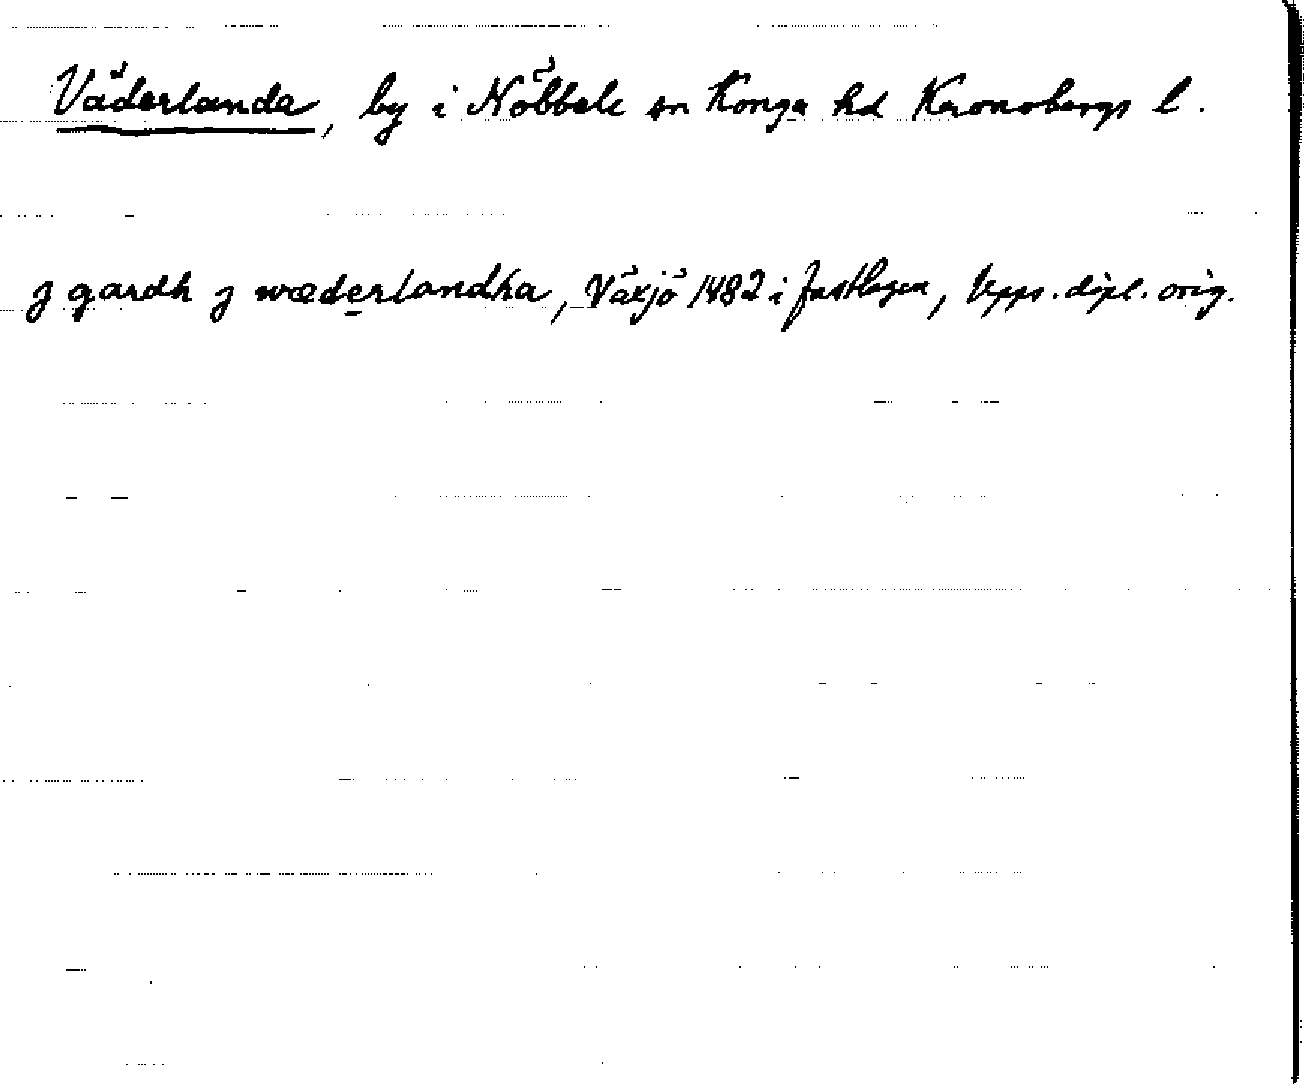 Väderlanda, by i Nöbbele sn Konga hd Kronobergs l.
j gardh j wæderlandha, Växjö 1482 i fastlagen, Upps. dipl. orig.